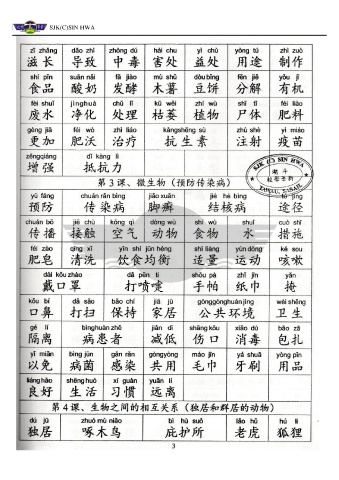 SJK(C) SIN HWA
zī zhǎng dǎo zhì zhòng dú hài chu yì chù yòng tú zhì zuò
滋长 导致 中毒 害处 益处 用途 制作
shí pǐn suān nǎi fā jiào mù shǔ dòu bǐng fēn jiě yǒu jī
食品 酸奶 发酵 木薯 豆饼 分解 有机
fèi shuǐ jìng huà chǔ lǐ kū wěi zhí wù shī tǐ féi liào
废水 净化 处理 枯萎 植物 尸体 肥料
gèng jiā féi wò zhì liáo kàngshēng sù zhù shè yì miáo
更加 肥沃 治疗 抗生素 注射 疫苗
zēngqiáng dǐ kàng lì
增强 抵抗力
SJK (C) SIN HWA
第3课、微生物（预防传染病）
yù fáng chuán rǎn bìng jiǎo xuǎn jié hé bìng tú jìng
预防 传染病 脚癣 结核病 途径
chuán bō jiē chù kōng qì dòng wù shí wù shuǐ cuò shī
传播 接触 空气 动物 食物 水 措施
féi zào qīng xǐ yǐn shí jūn héng shì liàng yùn dòng ké sou
肥皂 清洗 饮食均衡 适量 运动 咳嗽
dài kǒu zhào dǎ pēn tì shǒu pà zhǐ jīn yǎn
戴口罩 打喷嚏 手帕 纸巾 掩
kǒu bí dǎ sǎo bǎo chí jiā jū gōnggònghuánjìng wèi shēng
口鼻 打扫 保持 家居 公共环境 卫生
gé lí bìnghuàn zhě jiǎn dī shāng kǒu xiāo dú bāo zā
隔离 病患者 减低 伤口 消毒 包扎
yǐ miǎn bìng jūn gǎn rǎn gòngyòng máo jīn yá shuā yòng pǐn
以免 病菌 感染 共用 毛巾 牙刷 用品
liáng hǎo shēng huó xí guàn yuǎn lí
良好 生活 习惯 远离
第4课、生物之间的相互关系（独居和群居的动物）
dú jū zhuó mù niǎo bì hù suǒ lǎo hǔ hú li
独居 啄木鸟 庇护所 老虎 狐狸
3